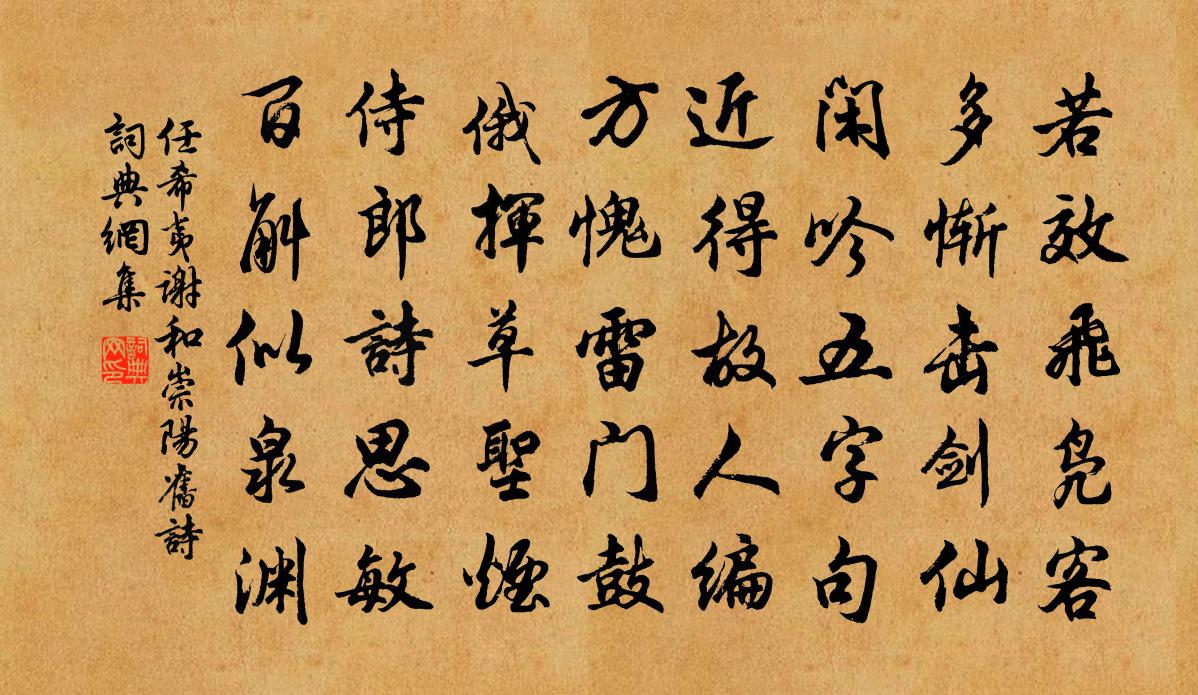 若效飛凫客
多慚击剑仙
閑吟五字句
近得故人编
方愧雷门鼓
俄揮草聖煙
侍郎詩思敏
百斛似泉渊
任希夷謝和崇陽舊詩
詞典網集
詞典网印